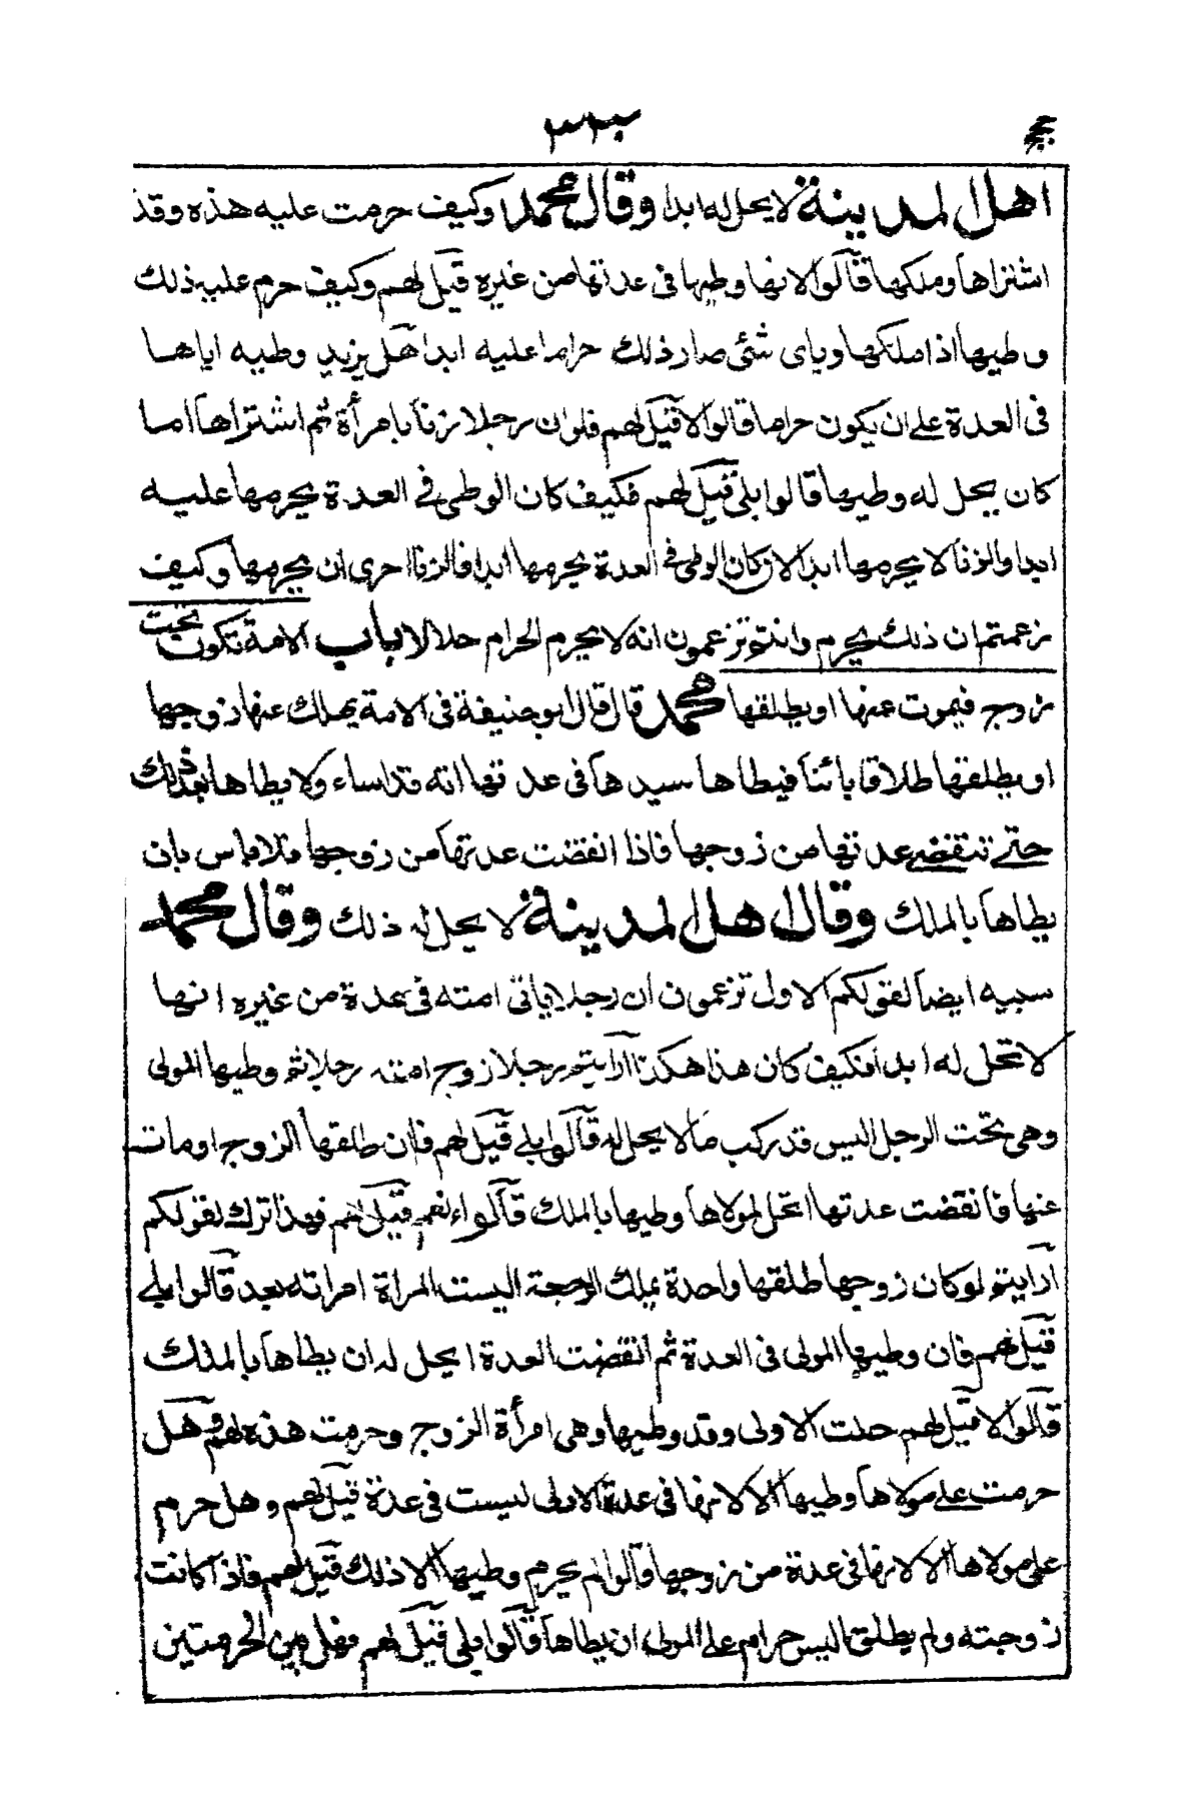 ٣٢٢
اهل المدينة لا يحل له ابدا وقال محمد وكيف حرمت عليه هذه وقد
اشتراها وملكها قالوا لانها وطيها فى عدتها من غيره قيل لهم وكيف حرم عليه ذلك
وطيها اذا ملكها وباى شئى صار ذلك حراما عليه ابدا هل يزيد وطيه اياها
فى العدة على ان يكون حراما قالوا لا قيل لهم فلو ان رجلا زنا بامرأة ثم اشتراها اما
كان يحل له وطيها قالوا بلى قيل لهم فكيف كان الوطى فى العدة يحرمها عليه
ابدا والزنا لا يحرمها ابدا لان كان الوطى فى العدة يحرمها ابدا فالزنا احرى ان يحرمها وكيف
زعمتم ان ذلك يحرم وانتم تزعمون انه لا يحرم الحرام حلالا باب الامة تكون تحت
زوج فيموت عنها او يطلقها محمد قال قال ابو حنيفة فى الامة يهلك عنها زوجها
او يطلقها طلاقا بائنا فيطاها سيدها فى عدتها انه قد اساء ولا يطاها بعد ذلك
حتى تنقضى عدتها من زوجها فاذا انقضت عدتها من زوجها فلا باس بان
يطاها بالملك وقال اهل المدينة لا يحل له ذلك وقال محمد
سبيه ايضا لقولكم الاول تزعمون ان رجلا ياتى امته فى عدة من غيره انها
لا تحل له ابدا فكيف كان هذا هكذا أرأيتم رجلا زوج امته رجلا ثم وطيها المولى
وهى تحت الرجل اليس قد ركب ما لا يحل له قالوا بلى قيل لهم فان طلقها الزوج او مات
عنها فانقضت عدتها اتحل لمولاها وطيها بالملك قالوا نعم قيل لهم فهذا ترك لقولكم
أرأيتم لو كان زوجها طلقها واحدة يملك الرجعة اليست المراة امراته بعد قالوا بلى
قيل لهم فان وطيها المولى فى العدة ثم انقضت العدة ايحل له ان يطاها بالملك
قالوا لا قيل لهم حلت الاولى وقد وطيها وهى امرأة الزوج وحرمت هذه لهم وهل
حرمت على مولاها وطيها الا لانها فى عدة الاولى ليست فى عدة قيل لهم وهل حرم
على مولاها الا لانها فى عدة من زوجها قالوا لم يحرم وطيها الا ذلك قيل لهم فاذا كانت
زوجته ولم يطلق اليس حرام على المولى ان يطاها قالوا بلى قيل لهم فهل بين الحرمتين